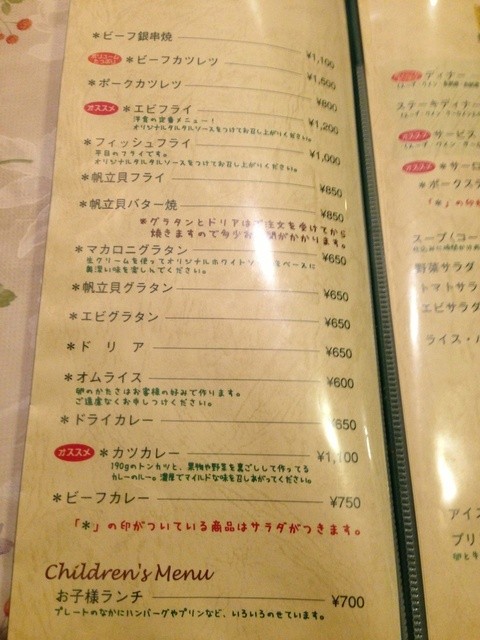 ＊ビーフ銀串焼 ¥1,100
＊ビーフカツレツ ¥1,500
＊ポークカツレツ ¥800
オススメ ＊エビフライ ¥1,200
洋食の定番メニュー！
オリジナルタルタルソースをつけてお召し上がりください。
＊フィッシュフライ ¥1,000
平目のフライです。
オリジナルタルタルソースをつけてお召し上がりください。
＊帆立貝フライ ¥850
＊帆立貝バター焼 ¥850
※グラタンとドリアはご注文を受けてから
焼きますので多少お時間がかかります。
＊マカロニグラタン ¥650
生クリームを使ってオリジナルホワイトソースをベースに
奥深い味を楽しんでください。
＊帆立貝グラタン ¥650
＊エビグラタン ¥650
＊ドリア ¥650
＊オムライス ¥600
卵のかたさはお客様の好みで作ります。
ご遠慮なくお申しつけください。
＊ドライカレー ¥650
オススメ ＊カツカレー ¥1,100
190gのトンカツと、果物や野菜を裏ごしして作ってる
カレーのルー。濃厚でマイルドな味を召しあがってください。
＊ビーフカレー ¥750
「＊」の印がついている商品はサラダがつきます。
Children's Menu
お子様ランチ ¥700
プレートのなかにハンバーグやプリンなど、いろいろのせています。
ディナー
ステーキディナー
オススメ サービス
オススメ ＊サーロ
＊ポークス
「＊」の印
スープ（コー
野菜サラダ
トマトサラダ
エビサラダ
ライス・パ
アイス
プリ